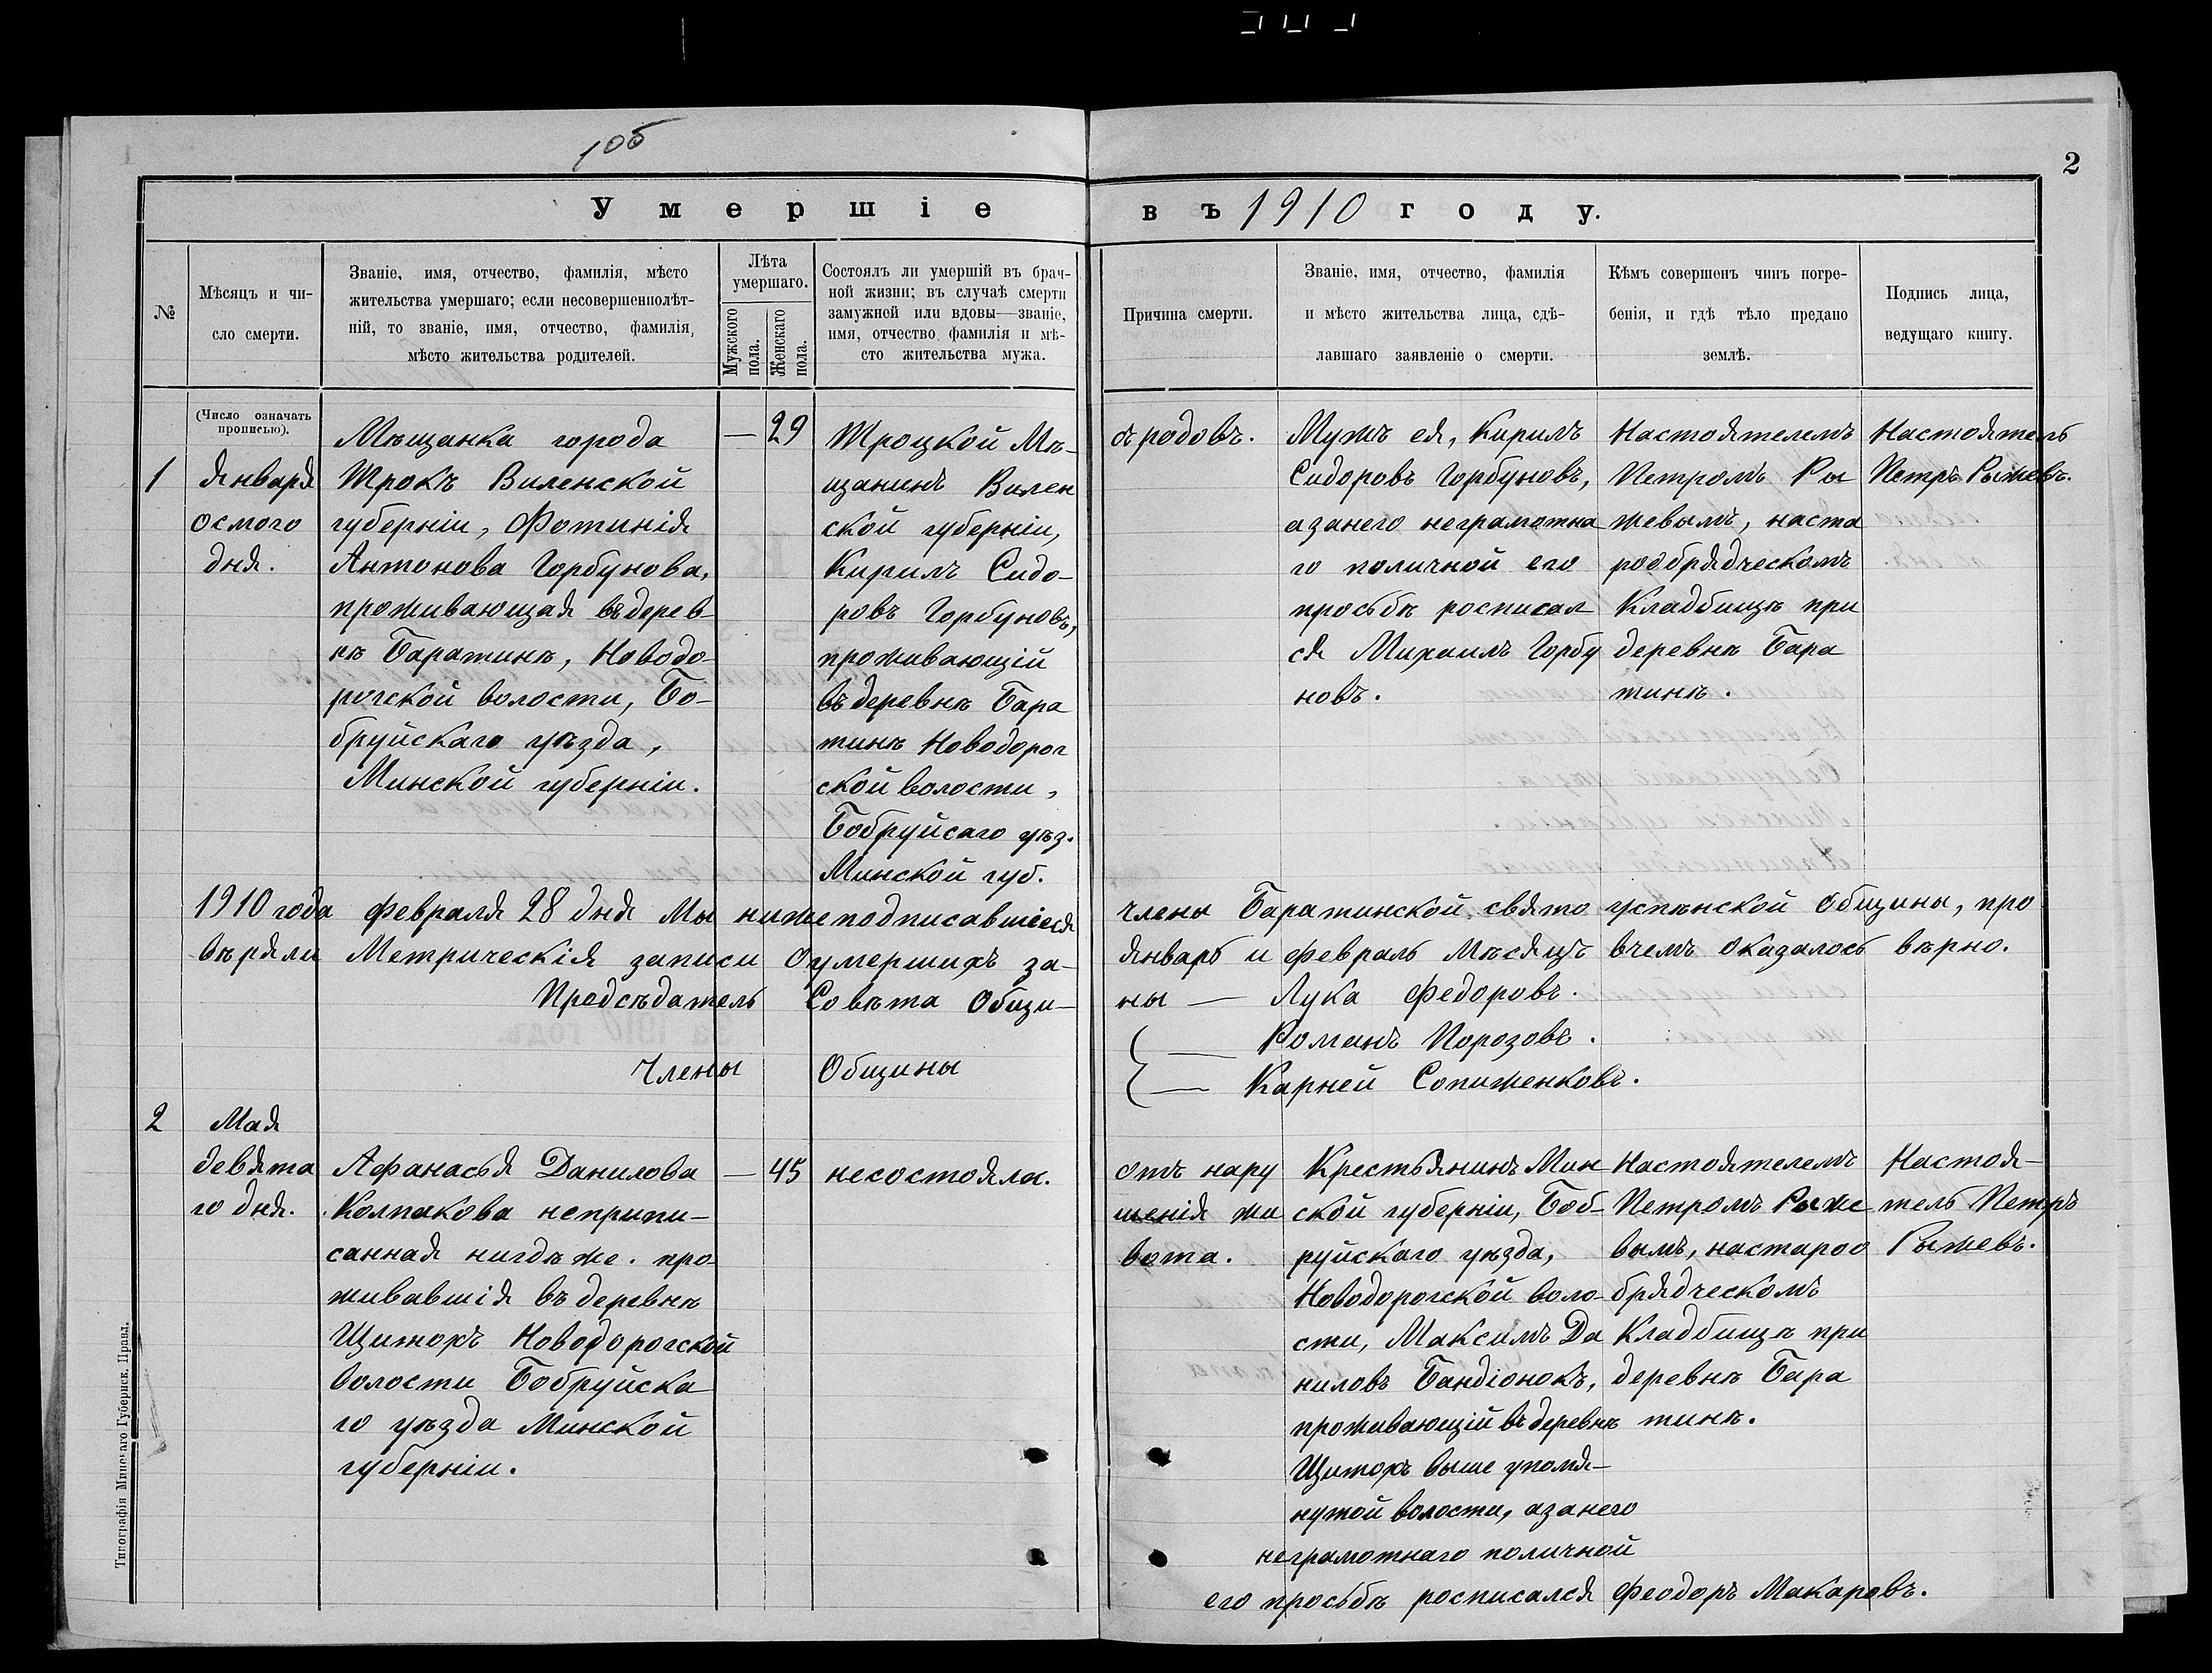 1об
2
Умершіе въ 1910 году.
№
Мѣсяцъ и чи-
сло смерти.
Званіе, имя, отчество, фамилія, мѣсто
жительства умершаго; если несовершеннолѣт-
ній, то званіе, имя, отчество, фамилія,
мѣсто жительства родителей.
Лѣта
умершаго.
Мужского
пола.
Женскаго
пола.
Состоялъ ли умершій въ брач-
ной жизни; въ случаѣ смерти
замужней или вдовы—званіе,
имя, отчество фамилія и мѣ-
сто жительства мужа.
Причина смерти.
Званіе, имя, отчество, фамилія
и мѣсто жительства лица, сдѣ-
лавшаго заявленіе о смерти.
Кѣмъ совершенъ чинъ погре-
бенія, и гдѣ тѣло предано
землѣ.
Подпись лица,
ведущаго книгу.
(Число означать
прописью).
1
Января
осмого
дня.
Мѣщанка города
Трокъ Виленской
губерніи, Фотинія
Антонова Горбунова,
проживающая въ дерев-
нѣ Баратинѣ, Новодо-
рогской волости, Бо-
бруйскаго уѣзда,
Минской губерніи.
— 29
Троцкой Мѣ-
щанинъ Вилен
ской губерніи,
Кирилъ Сидо-
ровъ Горбуновъ,
проживающій
въ деревнѣ Бара
тинѣ Новодорог
ской волости,
Бобруйсаго уѣз.
Минской губ.
отъ родовъ.
Мужъ ея, Кирилъ
Сидоровъ Горбуновъ,
азанего неграмотна
го поличной его
просьбѣ росписал
ся Михаилъ Горбу
новъ.
Настоятелемъ
Петромъ Ры
жевымъ, наста
рообрядческомъ
Кладбищѣ при
деревнѣ Бара
тинѣ.
Настоятель
Петръ Рыжевъ.
1910 года февраля 28 дня Мы нижеподписавшіеся члены Баратинской свято успѣнской общины, про
вѣряли Метрическія записи оумершихъ за- январь и февраль Мѣсяцъ вчемъ оказалось вѣрно.
Предсѣдатель Совѣта Общи- ны — Лука Федоровъ.
Члены Общины
— Романъ Порозовъ.
— Карней Сопиженковъ.
2
Мая
девята
го дня.
Афанасья Данилова
Колпакова неприпи-
санная нигдѣ же. про-
живавшія въ деревнѣ
Щитокъ Новодорогской
волости Бобруйска
го уѣзда Минской
губерніи.
— 45
несостояла.
отъ нару
шенія жи
вота.
Крестьянинъ Мин
ской губерніи, Боб-
руйскаго уѣзда,
Новодорогской воло-
сти, Максимъ Да
ниловъ Бандіонокъ,
проживающій въ деревнѣ
Щитокъ выше упомя-
нутой волости, азанего
неграмотнаго поличной
его просьбѣ росписался Феодоръ Макаровъ.
Настоятелемъ
Петромъ Рыже
вымъ, настароо
брядческомъ
Кладбищѣ при
деревнѣ Бара
тинѣ.
Настоя-
тель Петръ
Рыжевъ.
Типографія Минскаго Губернск. Правл.